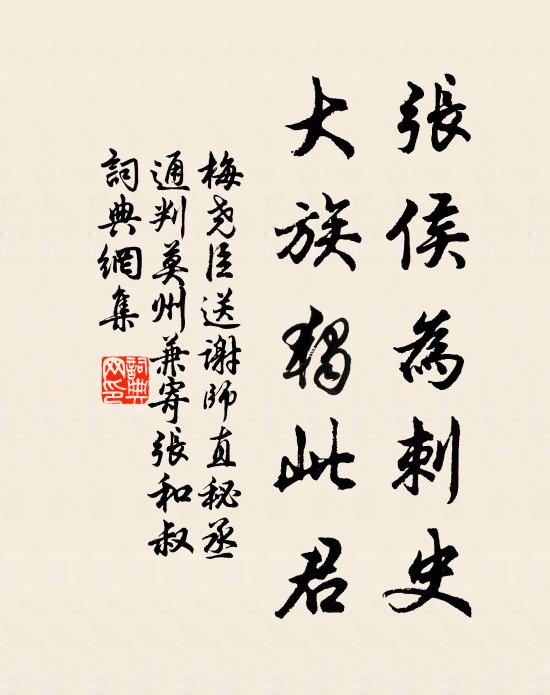 張侯為刺史
大族獨此君
梅堯臣送謝師直秘丞
通判莫州兼寄張和叔
詞典網集
詞典
网印